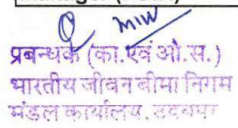 प्रबन्धक (का.एवं ओ.स.)
भारतीय जीवन बीमा निगम
मंडल कार्यालय, उदयपुर